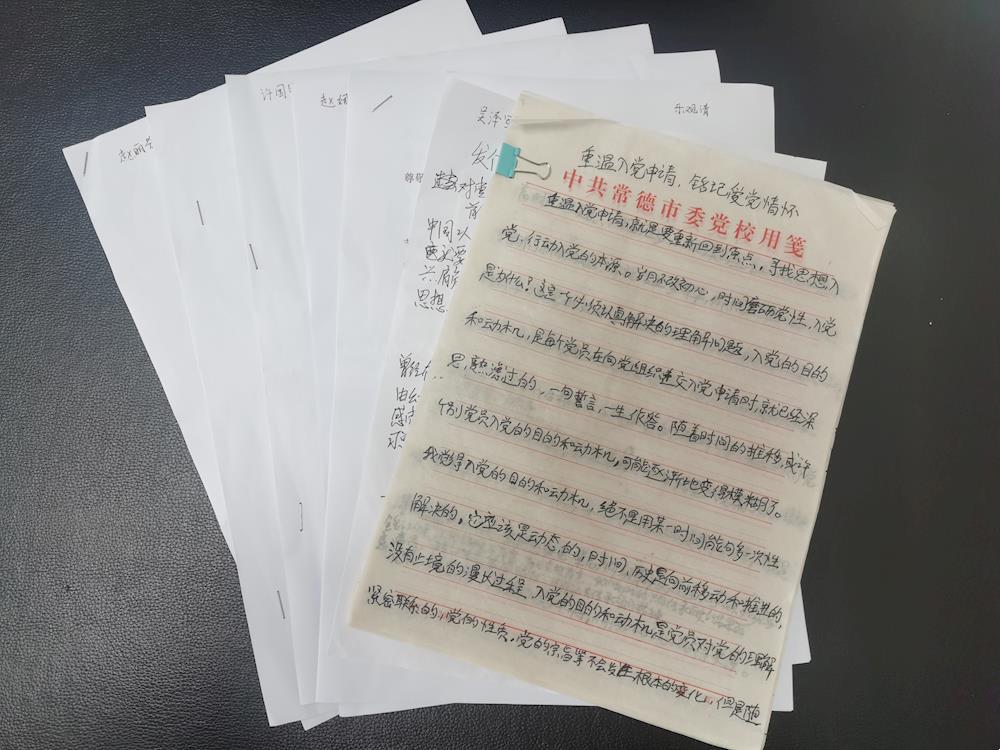 赵丽
许国
赵
乐观清
吴泽
发
尊敬
中国以
兴
思想
曾经
由
感
重温入党申请,铭记爱党情怀
中共常德市委党校用笺
重温入党申请,就是要重新回到原点,寻找思想入
党,行动入党的本源。岁月不改初心,时间磨砺党性,入党
是为什么?这是一个必须认真解决的理解问题,入党的目的
和动机,是每个党员在向党组织递交入党申请时,就已经深
思,熟滤过的,一句誓言,一生作答。随着时间的推移,或许
个别党员入党的目的和动机,可能逐渐地变得模糊了。
我觉得入党的目的和动机,绝不是用某一时间能够多一次性
解决的。它应该是动态的,时间、历史是向前移动和推进的,
没有止境的漫长过程,入党的目的和动机是党员对党的理解
紧密联系的,党的性质,党的宗旨等不会发生根本的变化,但是随